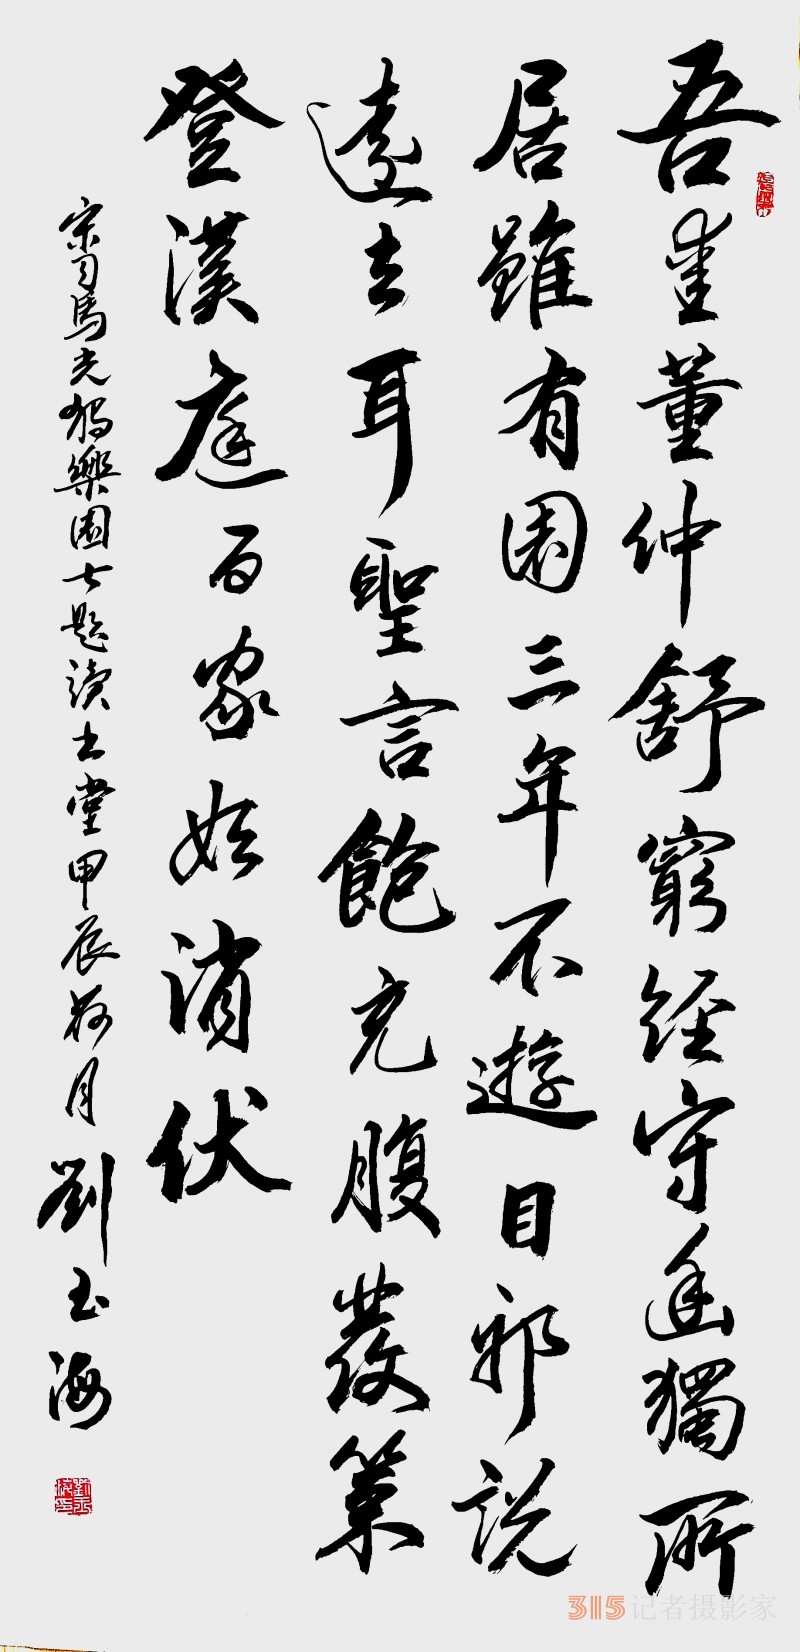 吾愛董仲舒窮經守幽獨所
居雖有園三年不遊目邪說
遠去耳聖言飽充腹發策
登漢庭百家始消伏
宋司馬光獨樂園七題讀書堂甲辰荷月劉玉海
315记者摄影家